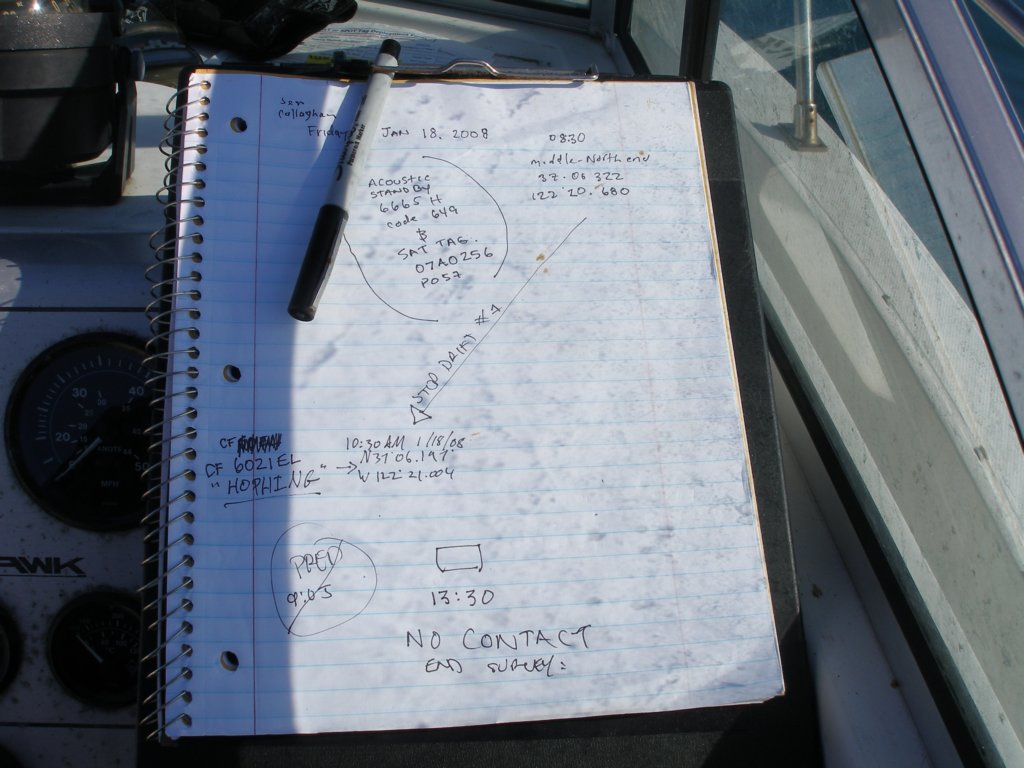 Jen
Callaghan
Friday JAN 18, 2008
08:30
middle-North end
37.06 322
122 20. 680
ACOUSTIC
STANDBY
6665 H
code 649
&
SAT TAG.
07A0256
P057
STOP DRIFT #1
CF
CF 6021EL
"HOPHING"
10:30 AM 1/18/08
N37°06.197
W 122° 21.004
PRED
9:05
13:30
NO CONTACT
END SURVEY:
30
40
20
50
KNOTS
MPH
AWK